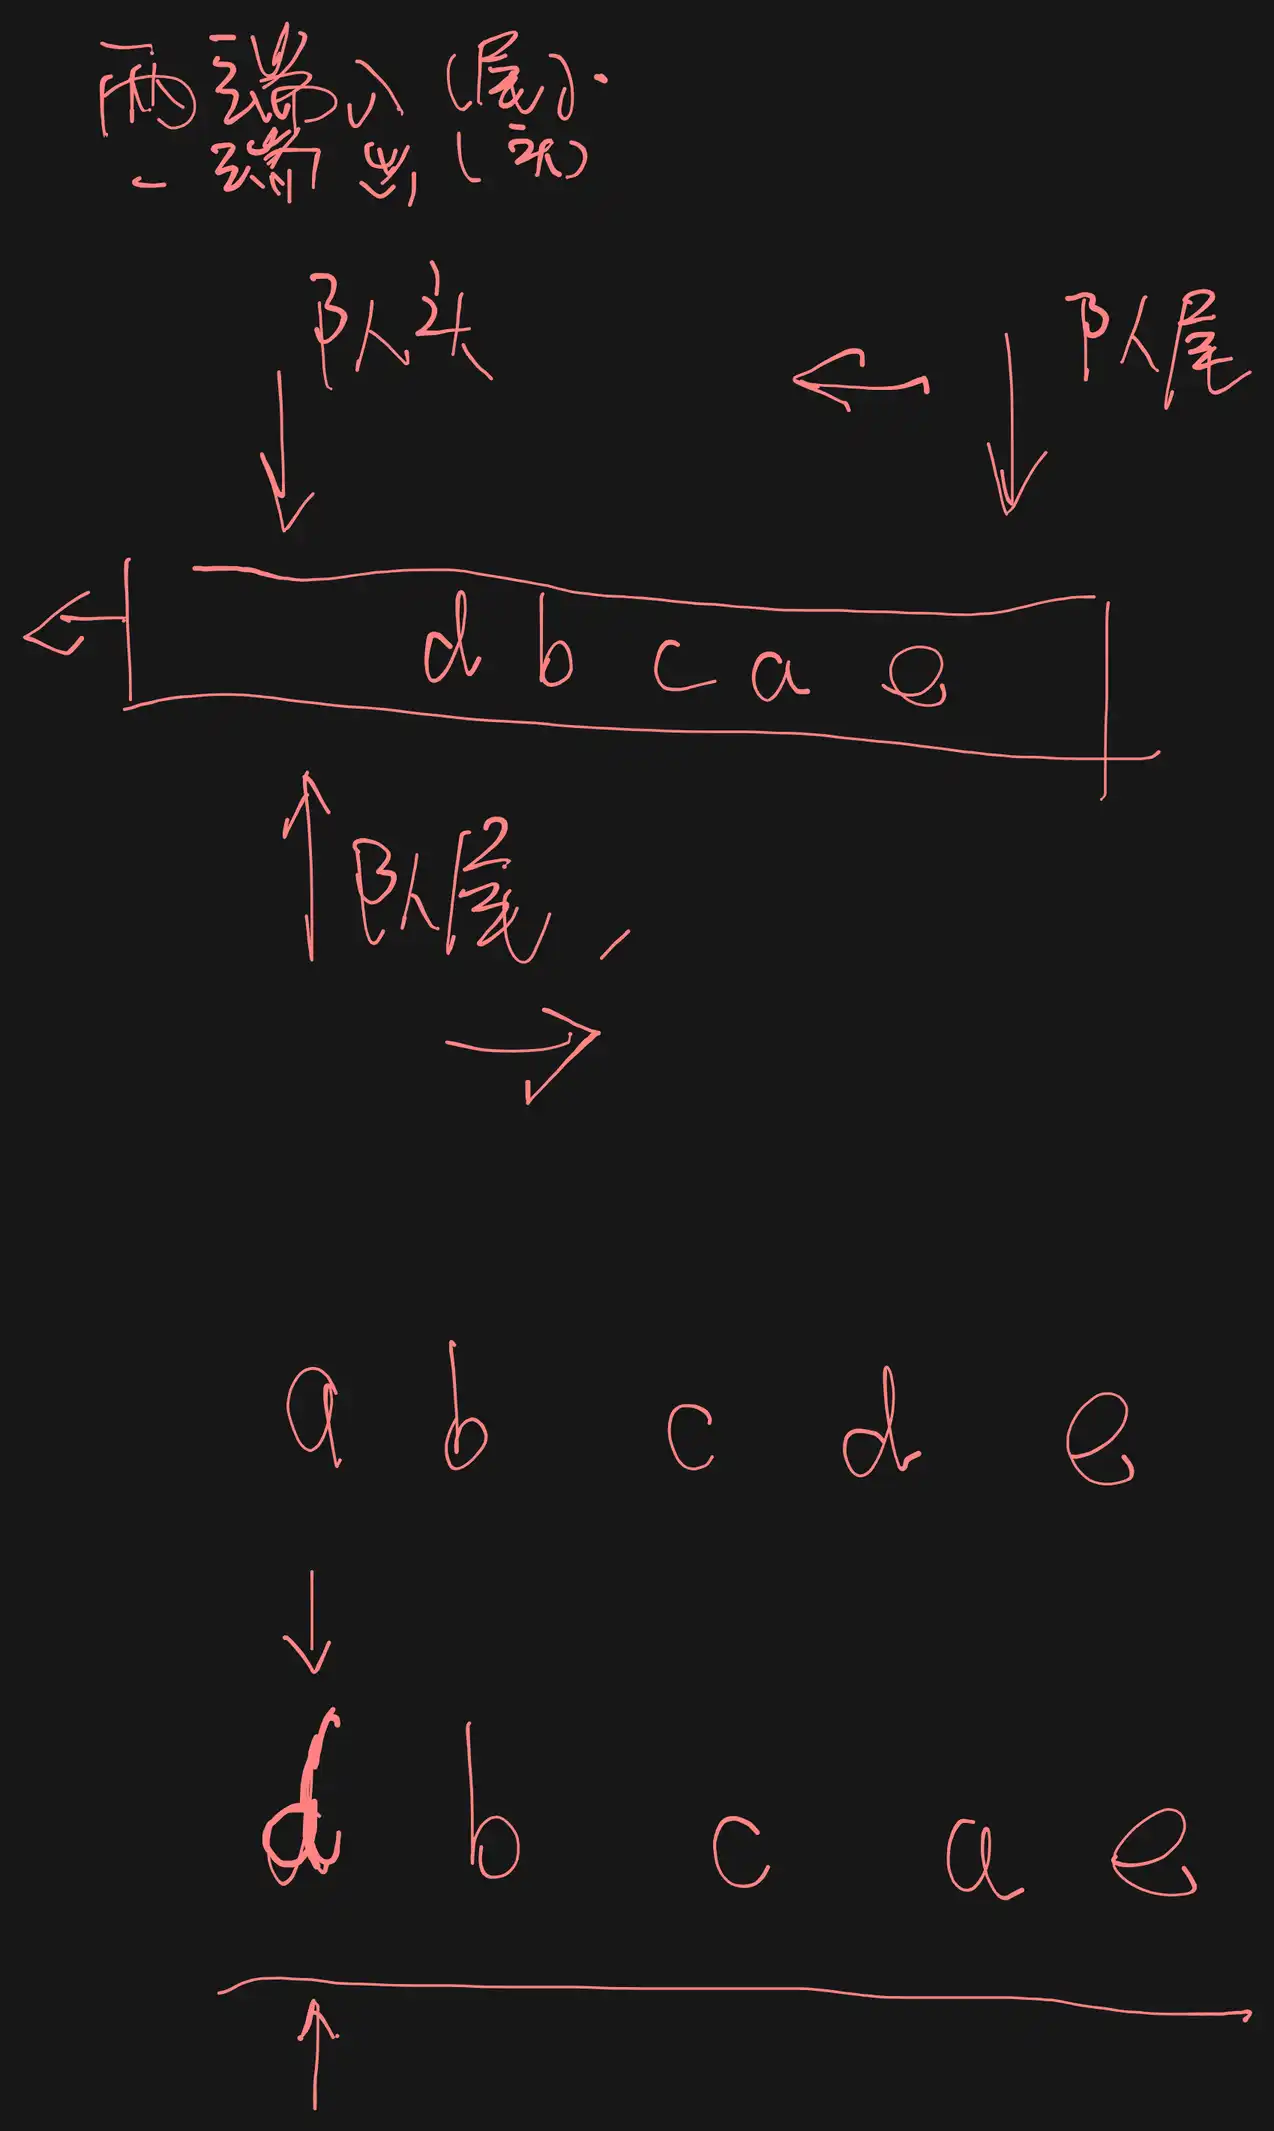 两端入(尾).
一端出(头)
队头
队尾
d b c a e
队尾
a b c d e
d b c a e